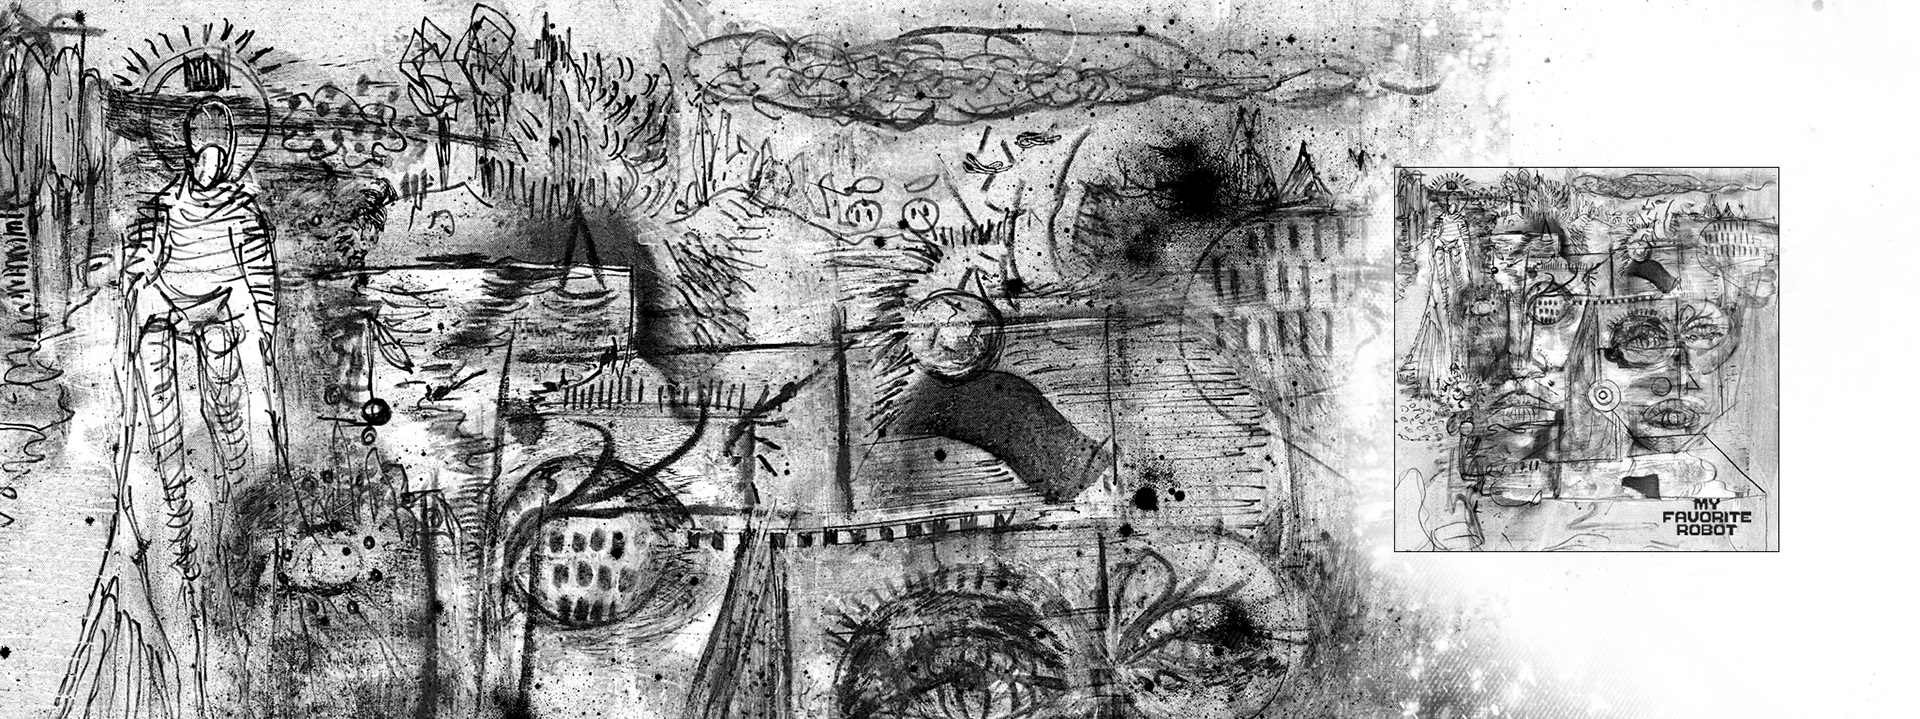 MY
FAVORITE
ROBOT